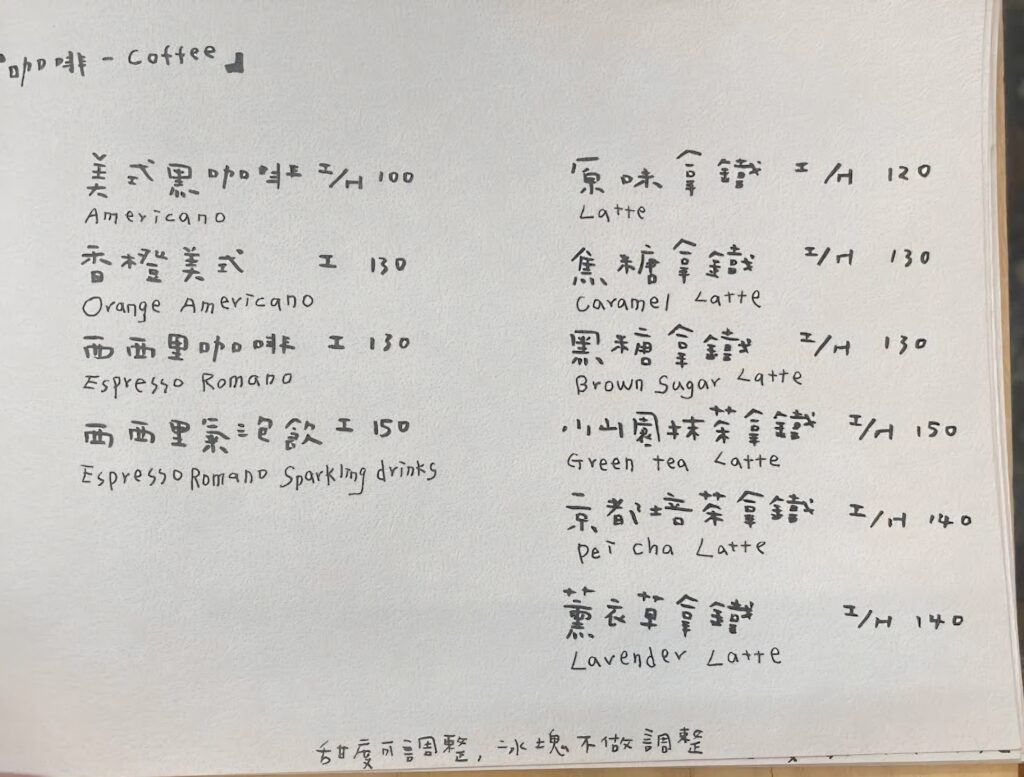 『咖啡 - Coffee』
美式黑咖啡 I/H 100
Americano
香橙美式 I 130
Orange Americano
西西里咖啡 I 130
Espresso Romano
西西里氣泡飲 I 150
Espresso Romano Sparkling drinks
原味拿鐵 I/H 120
Latte
焦糖拿鐵 I/H 130
Caramel Latte
黑糖拿鐵 I/H 130
Brown Sugar Latte
小山園抹茶拿鐵 I/H 150
Green tea Latte
京都培茶拿鐵 I/H 140
Pei cha Latte
薰衣草拿鐵 I/H 140
Lavender Latte
甜度可調整, 冰塊不做調整